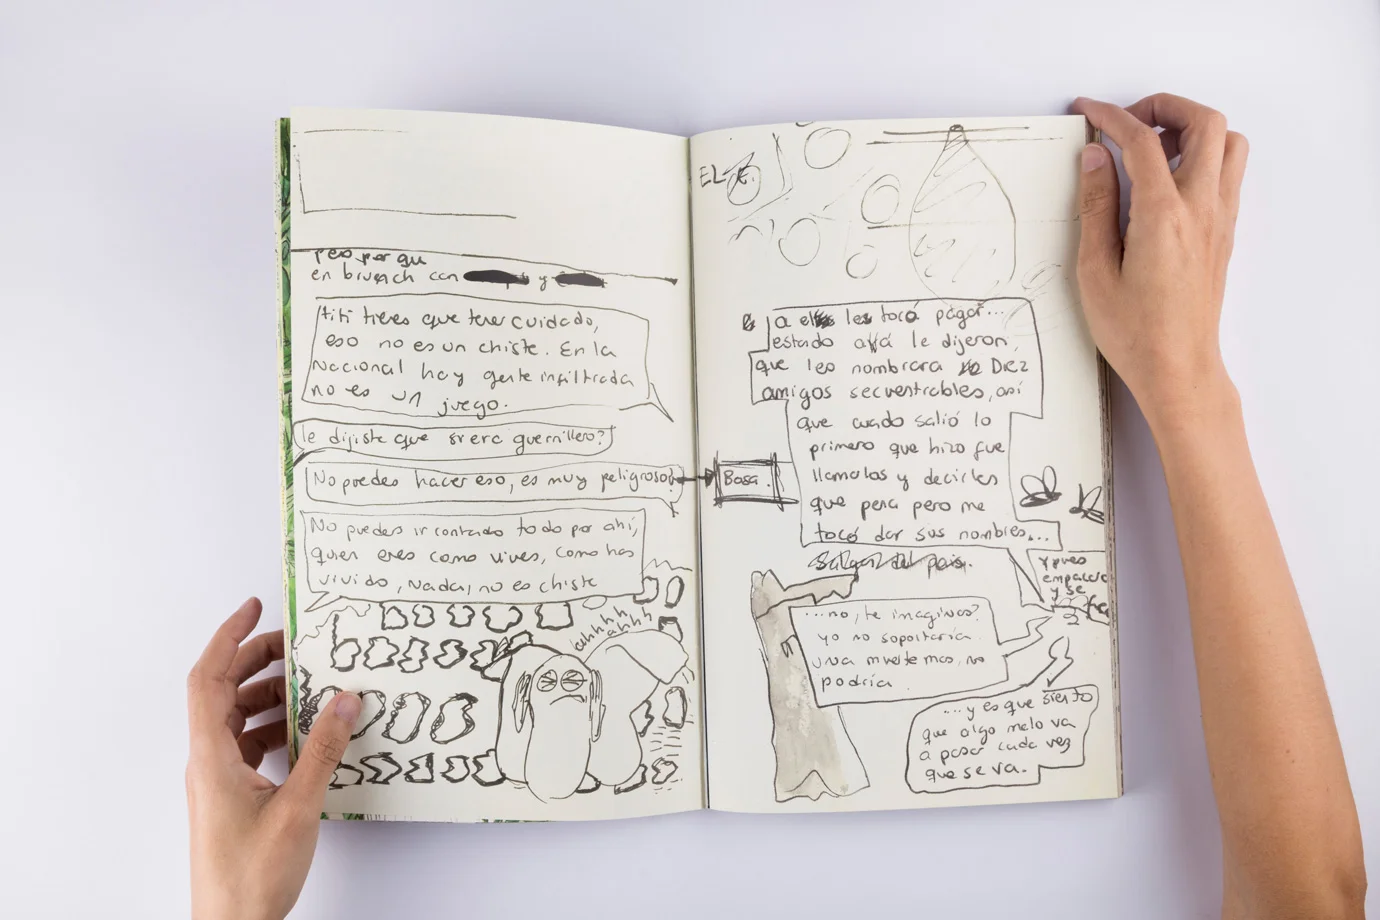 pero por qu
en brunch con y
titi tienes que tener cuidado,
eso no es un chiste. En la
nacional hay gente infiltrada
no es un juego.
le dijiste que si era guerrillero?
No puedes hacer eso, es muy peligroso!
No puedes ir contando todo por ahí,
quien eres como vives, como has
vivido, nada, no es chiste
ahhhh
ahhhh
EL
a el le tocó pagar...
estando allá le dijeron,
que les nombrara Diez
amigos secuestrables, así
que cuando salió lo
primero que hizo fue
llamarlos y decirles
que pena pero me
tocó dar sus nombres...
Basa.
Salgan del país.
Y pues
empacaro
y se
fue
...no, te imaginas?
yo no soportaría
una muerte mas, no
podría
...y es que siento
que algo malo va
a pasar cada vez
que se va.